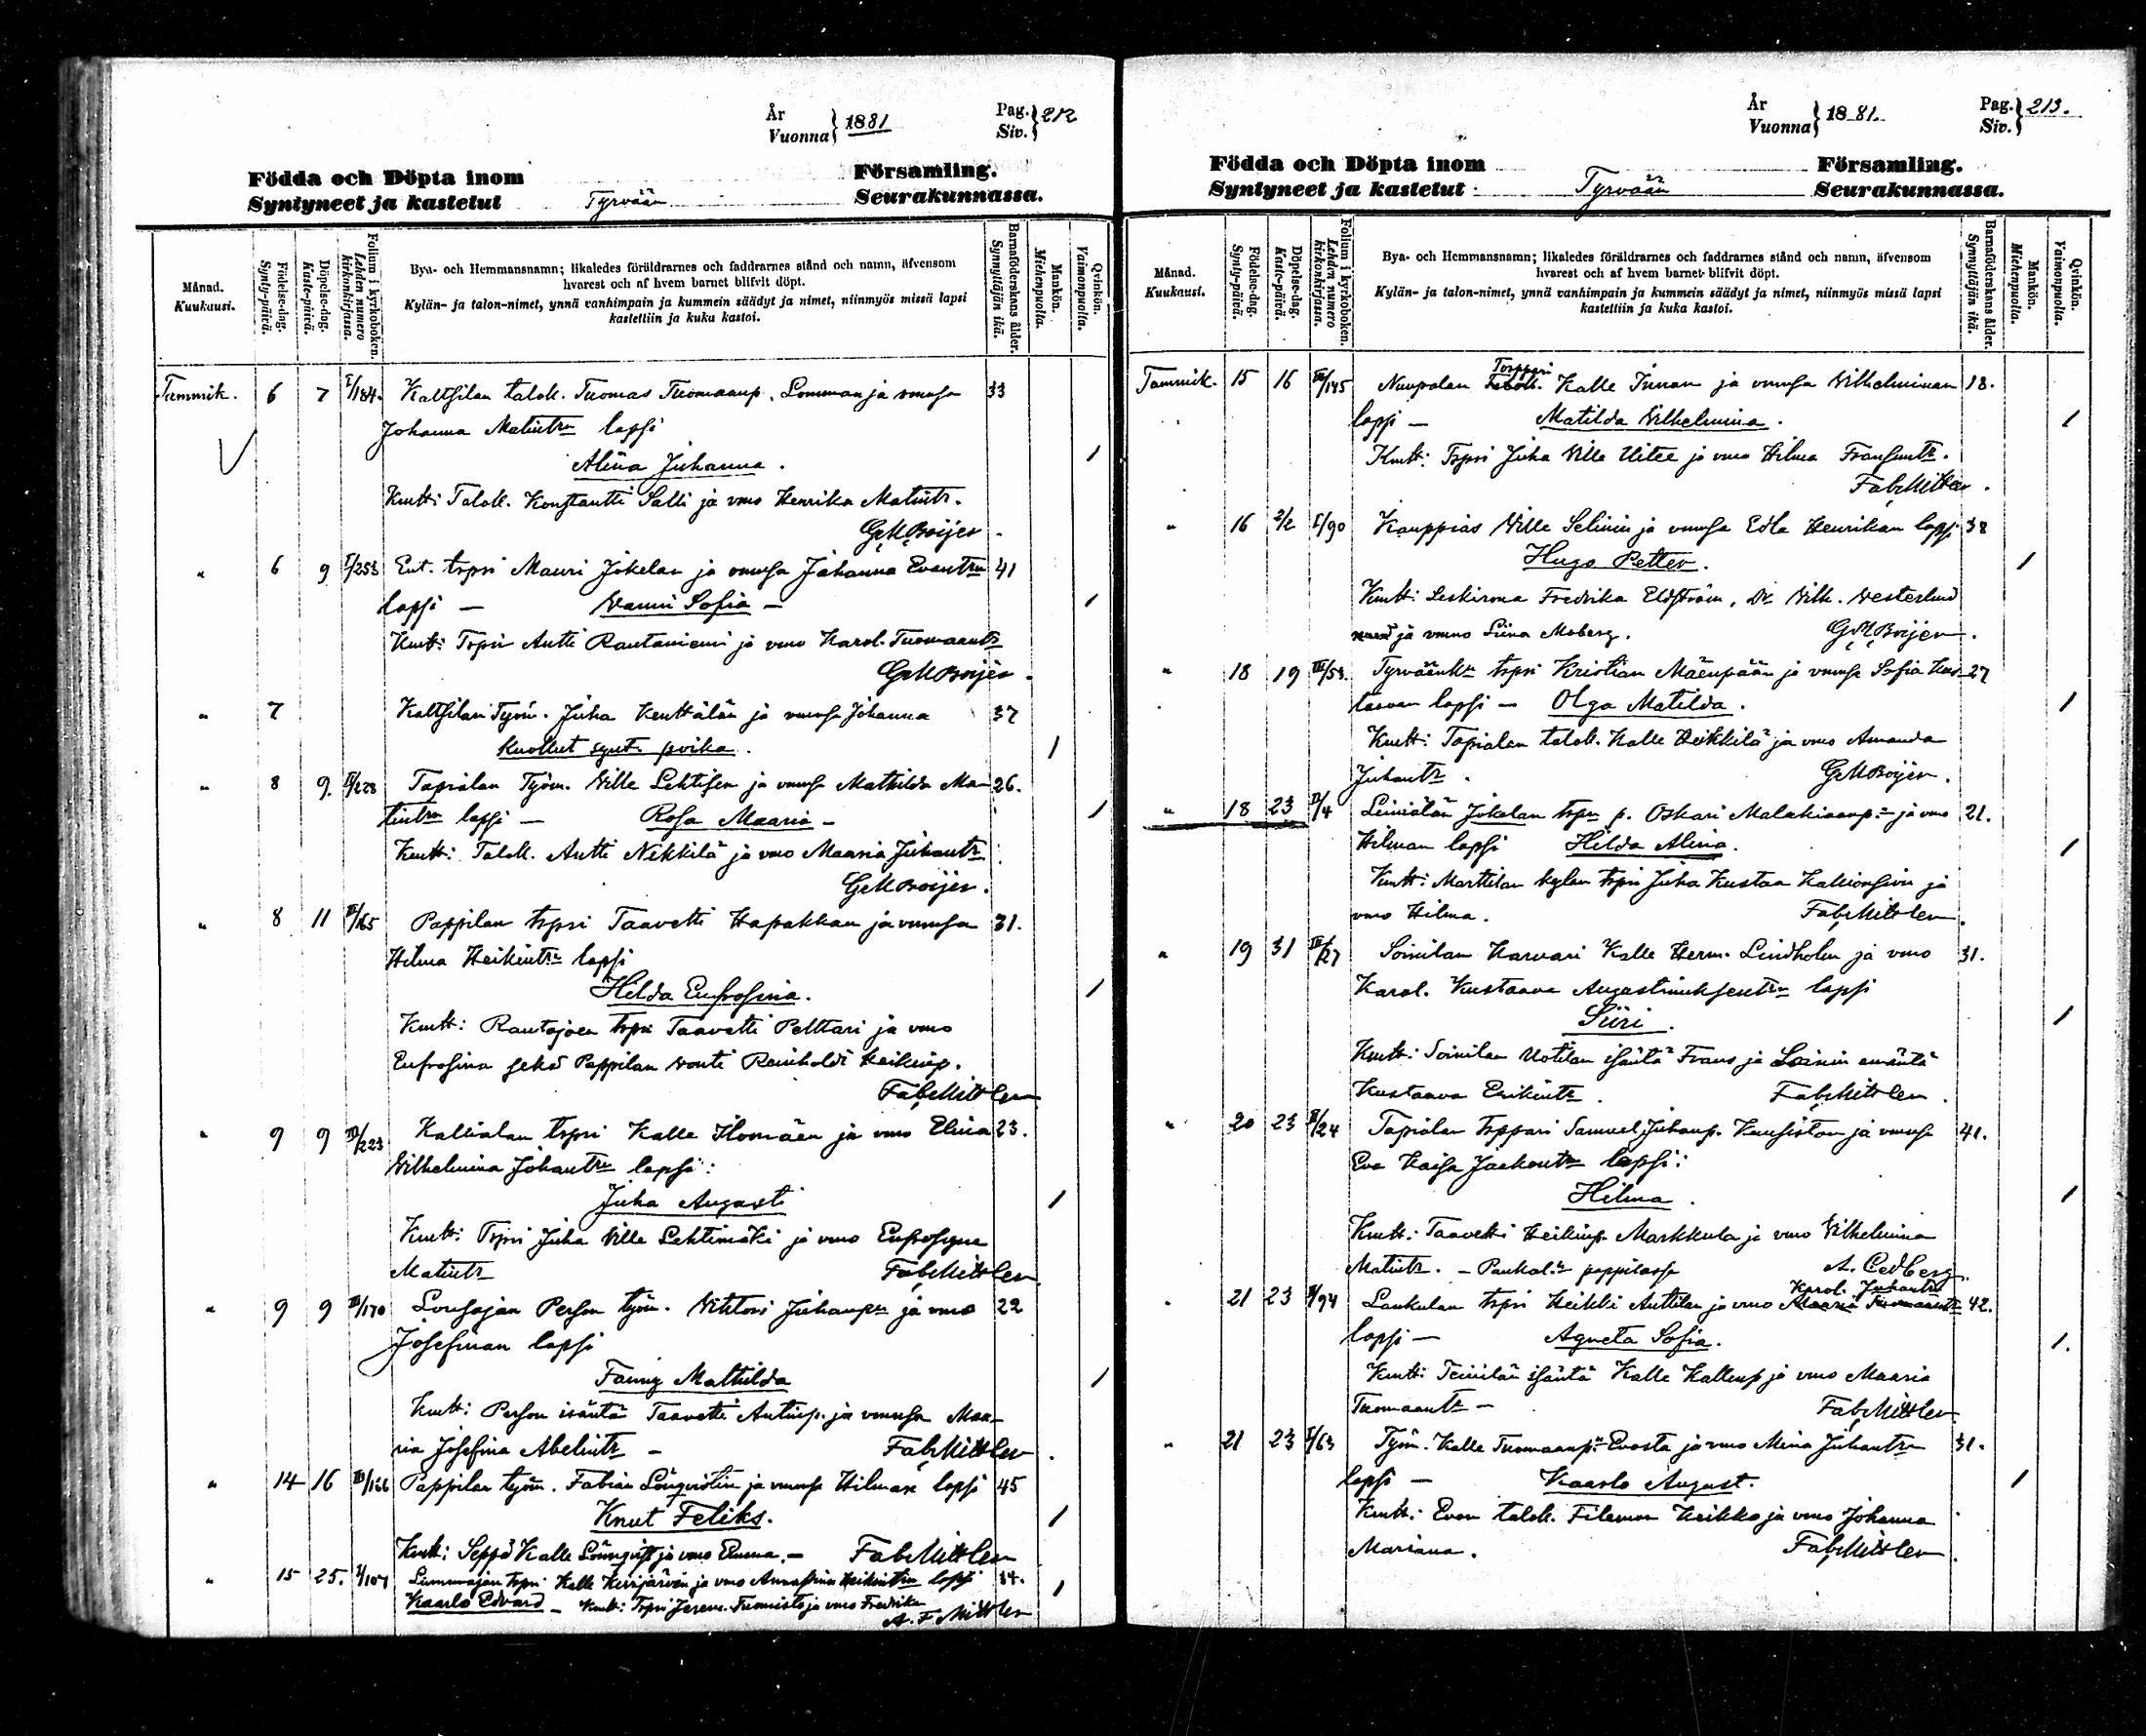 År
Vuonna } 1881
Pag.
Siv. } 212
Födda och Döpta inom Församling.
Syntyneet ja kastetut Tyrvään Seurakunnassa.
Månad.
Kuukausi.
Födelse-dag.
Synty-päivä.
Döpelse-dag.
Kaste-päivä.
Folium i kyrkoboken.
Lehden numero kirkonkirjassa.
Bya- och Hemmansnamn; likaledes föräldrarnes och faddrarnes stånd och namn, äfvensom
hvarest och af hvem barnet blifvit döpt.
Kylän- ja talon-nimet, ynnä vanhimpain ja kummein säädyt ja nimet, niinmyös missä lapsi
kastettiin ja kuka kastoi.
Barnaföderskans ålder.
Synnyttäjän ikä.
Mankön.
Miehenpuolta.
Qvinkön.
Vaimonpuolta.
Tammik. 6 7 I/184. Kaltsilan talok. Tuomas Tuomaanp. Lomman ja vmnsa 33
Johanna Matintrn lapsi
Alina Juhanna. 1
Kmtt: Talok. Konstantti Salli ja vmo Henrika Matintr.
G M Boijer.
" 6 9 I/253 Ent. trpri Mauri Jokelan ja vmnsa Johanna Evantrn 41
lapsi — Wanni Sofia — 1
Kmtt: Trpri Antti Rautaniemi ja vmo Karol. Tuomaantr
G M Boijer.
" 7 Kaltsilan Työm. Juha Kenttälän ja vmnsa Johanna 37
kuollut synt. poika. 1
" 8 9. II/228 Tapialan Työm. Wille Lehtisen ja vmnsa Mathilda Ma- 26.
tintrn lapsi — Rosa Maaria — 1
Kmtt: Talok. Antti Nekkilä ja vmo Maaria Juhantr
G M Boijer.
" 8 11 III/165 Pappilan trpri Taavetti Hapakkan ja vmnsa 31.
Hilma Heikintrn lapsi
Hilda Eufrosina. 1
Kmtt: Rautajoen trpri Taavetti Pelttari ja vmo
Eufrosina sekä Pappilan vouti Reinholdi Heikinp.
Fab. Mittler
" 9 9 III/223 Kallialan trpri Kalle Ilomäen ja vmo Elina 23.
Wilhelmina Johantrn lapsi:
Juha Augusti 1
Kmtt: Trpri Juha Wille Lehtimäki ja vmo Eufrosyna
Matintr Fab. Mittler
" 9 9 III/170 Lousajan Person työm. Wihtori Juhanpn ja vmo 22
Josefinan lapsi
Fanny Mathilda 1
Kmtt: Person isäntä Taavetti Antinp. ja vmnsa Maa-
ria Josefina Abelintr — Fab. Mittler.
" 14 16 III/166 Pappilan työm. Fabian Lönqvistin ja vmnsa Hilman lapsi 45
Knut Feliks. 1
Kmtt: Seppä Kalle Lönnqvist ja vmo Emma. — Fab. Mittler
" 15 25. I/107 Kalle Kirrjärvin ja vmo Heikintrn lapsi 34.
Kaarlo Edvard — Kmtt: Trpri Jerem. Tuomisto ja vmo Fredrika 1
A. F. Mittler
År
Vuonna } 1881.
Pag.
Siv. } 213.
Födda och Döpta inom Församling.
Syntyneet ja kastetut Tyrvään Seurakunnassa.
Månad.
Kuukausi.
Födelse-dag.
Synty-päivä.
Döpelse-dag.
Kaste-päivä.
Folium i kyrkoboken.
Lehden numero kirkonkirjassa.
Bya- och Hemmansnamn; likaledes föräldrarnes och faddrarnes stånd och namn, äfvensom
hvarest och af hvem barnet blifvit döpt.
Kylän- ja talon-nimet, ynnä vanhimpain ja kummein säädyt ja nimet, niinmyös missä lapsi
kastettiin ja kuka kastoi.
Barnaföderskans ålder.
Synnyttäjän ikä.
Mankön.
Miehenpuolta.
Qvinkön.
Vaimonpuolta.
Torppari
Tammik. 15 16 III/145 Nuupalan Talok. Kalle Innan ja vmnsa Wilhelminan 18.
lapsi — Matilda Wilhelmina. 1
Kmtt: Trpri Juha Wille Uitee ja vmo Hilma Fransuntr.
Fab. Mittler.
" 16 2/2 I/90 Kauppias Wille Selinin ja vmnsa Edla Henrikan lapsi 38
Hugo Petter. 1
Kmtt: Leskirova Fredrika Eldström, Dr Wilh. Westerlund
ja vmns Siina Moberg. G M Boijer.
" 18 19 III/53. Tyrväänk. trpri Kristian Mäenpään ja vmnsa Sofia Kus- 27
taavan lapsi — Olga Matilda. 1
Kmtt: Tapialan talok. Kalle Heikkilä ja vmo Amanda
Juhantr. G M Boijer.
" 18 23 II/4 Leiniälän Jokelan trprn p. Oskari Malakiaanp. ja vmo 21.
Hilman lapsi Hilda Alina. 1
Kmtt: Marttilan kylän trpri Juha Kustaa Kallionsivu ja
vmo Hilma. Fab. Mittler.
" 19 31 III/27 Soinilan Karvari Kalle Herm. Lindholm ja vmo 31.
Karol. Kustaava Augustinuksentrn lapsi
Siiri. 1
Kmtt: Soinilan Uotilan isäntä Frans ja Loinin emäntä
Kustaava Erikintr. Fab. Mittler.
" 20 23 II/24 Tapialan torppari Samuel Juhanp. Kuusiston ja vmnsa 41.
Eva Kaisa Jaakontrn lapsi:
Hilma. 1
Kmtt: Taavetti Heikinp. Markkula ja vmo Wilhelmina
Matintr. — pappilassa A. Cedberg.
Karol. Juhantrn
" 21 23 II/94 Laukulan trpri Heikki Anttilan ja vmo Maaria Tuomaantr 42.
lapsi — Agneta Sofia. 1.
Kmtt: Teinilän isäntä Kalle Kallenp ja vmo Maaria
Tuomaantr — Fab. Mittler
" 21 23 I/63 Työm. Kalle Tuomaanp. Evosta ja vmo Mina Juhantrn 31.
lapsi — Kaarlo August. 1
Kmtt: Evon talok. Filemon Heikko ja vmo Johanna
Mariana. Fab. Mittler.